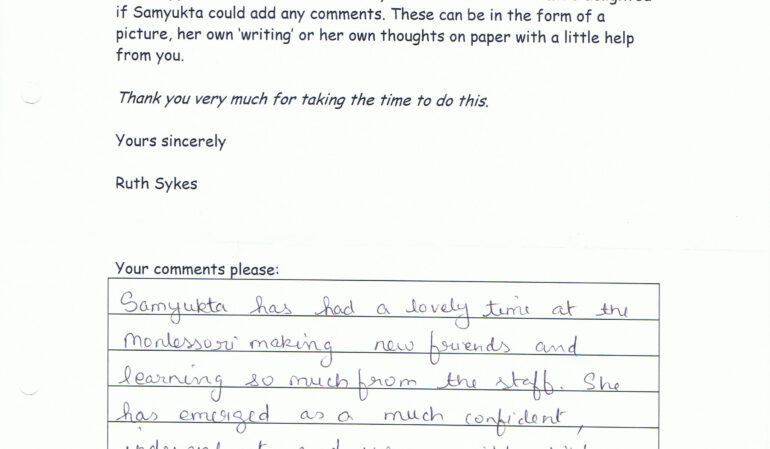 if Samyukta could add any comments. These can be in the form of a
picture, her own 'writing' or her own thoughts on paper with a little help
from you.
Thank you very much for taking the time to do this.
Yours sincerely
Ruth Sykes
Your comments please:
Samyukta has had a lovely time at the
Montessori making new friends and
learning so much from the staff. She
has emerged as a much confident,